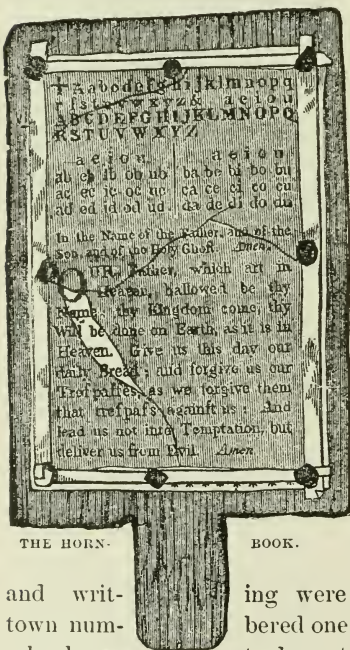 + Aabcdefghijklmnopq
rſstuvwxyz& aeiou
ABCDEFGHIJKLMNOPQ
RSTUVWXYZ
a e i o u a e i o u
ab eb ib ob ub ba be bi bo bu
ac ec ic oc uc ca ce ci co cu
ad ed id od ud da de di do du
In the Name of the Father, and of the
Son, and of the Holy Ghoſt. Amen.
OUR Father, which art in
Heaven, hallowed be thy
Name; thy Kingdom come, thy
Will be done on Earth, as it is in
Heaven. Give us this day our
daily Bread; and forgive us our
Treſpaſſes, as we forgive them
that treſpaſs againſt us: And
lead us not into Temptation, but
deliver us from Evil. Amen
THE HORN- BOOK.
and writ- ing were
town num- bered one